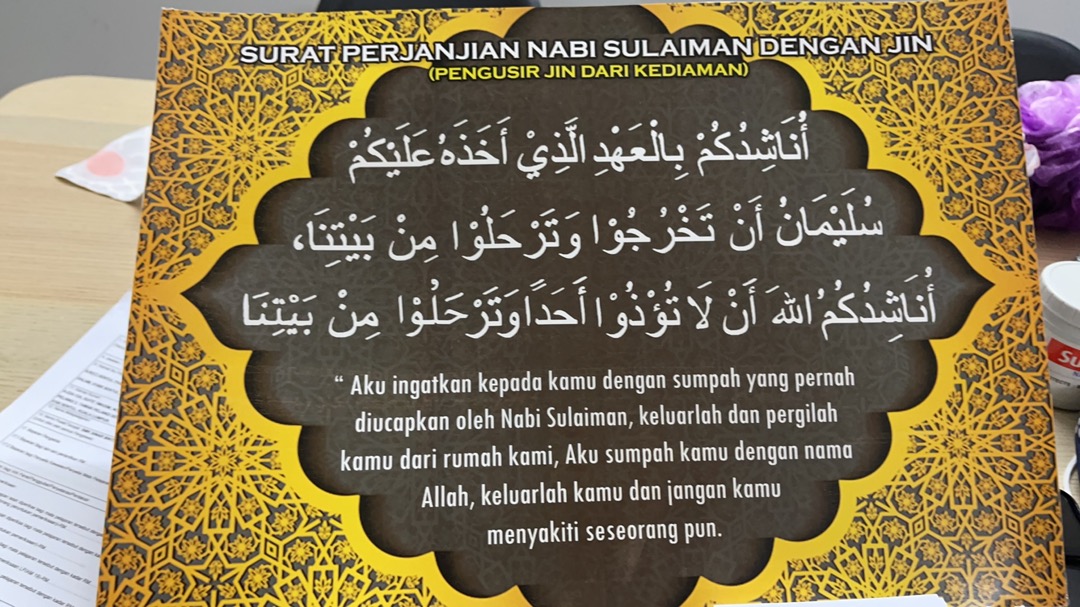 SURAT PERJANJIAN NABI SULAIMAN DENGAN JIN
(PENGUSIR JIN DARI KEDIAMAN)
أُنَاشِدُكُمْ بِالْعَهْدِ الَّذِيْ أَخَذَهُ عَلَيْكُمْ
سُلَيْمَانُ أَنْ تَخْرُجُوْا وَتَرْحَلُوْا مِنْ بَيْتِنَا،
أُنَاشِدُكُمُ اللهَ أَنْ لَا تُؤْذُوْا أَحَدًا وَتَرْحَلُوْا مِنْ بَيْتِنَا
“ Aku ingatkan kepada kamu dengan sumpah yang pernah
diucapkan oleh Nabi Sulaiman, keluarlah dan pergilah
kamu dari rumah kami, Aku sumpah kamu dengan nama
Allah, keluarlah kamu dan jangan kamu
menyakiti seseorang pun.